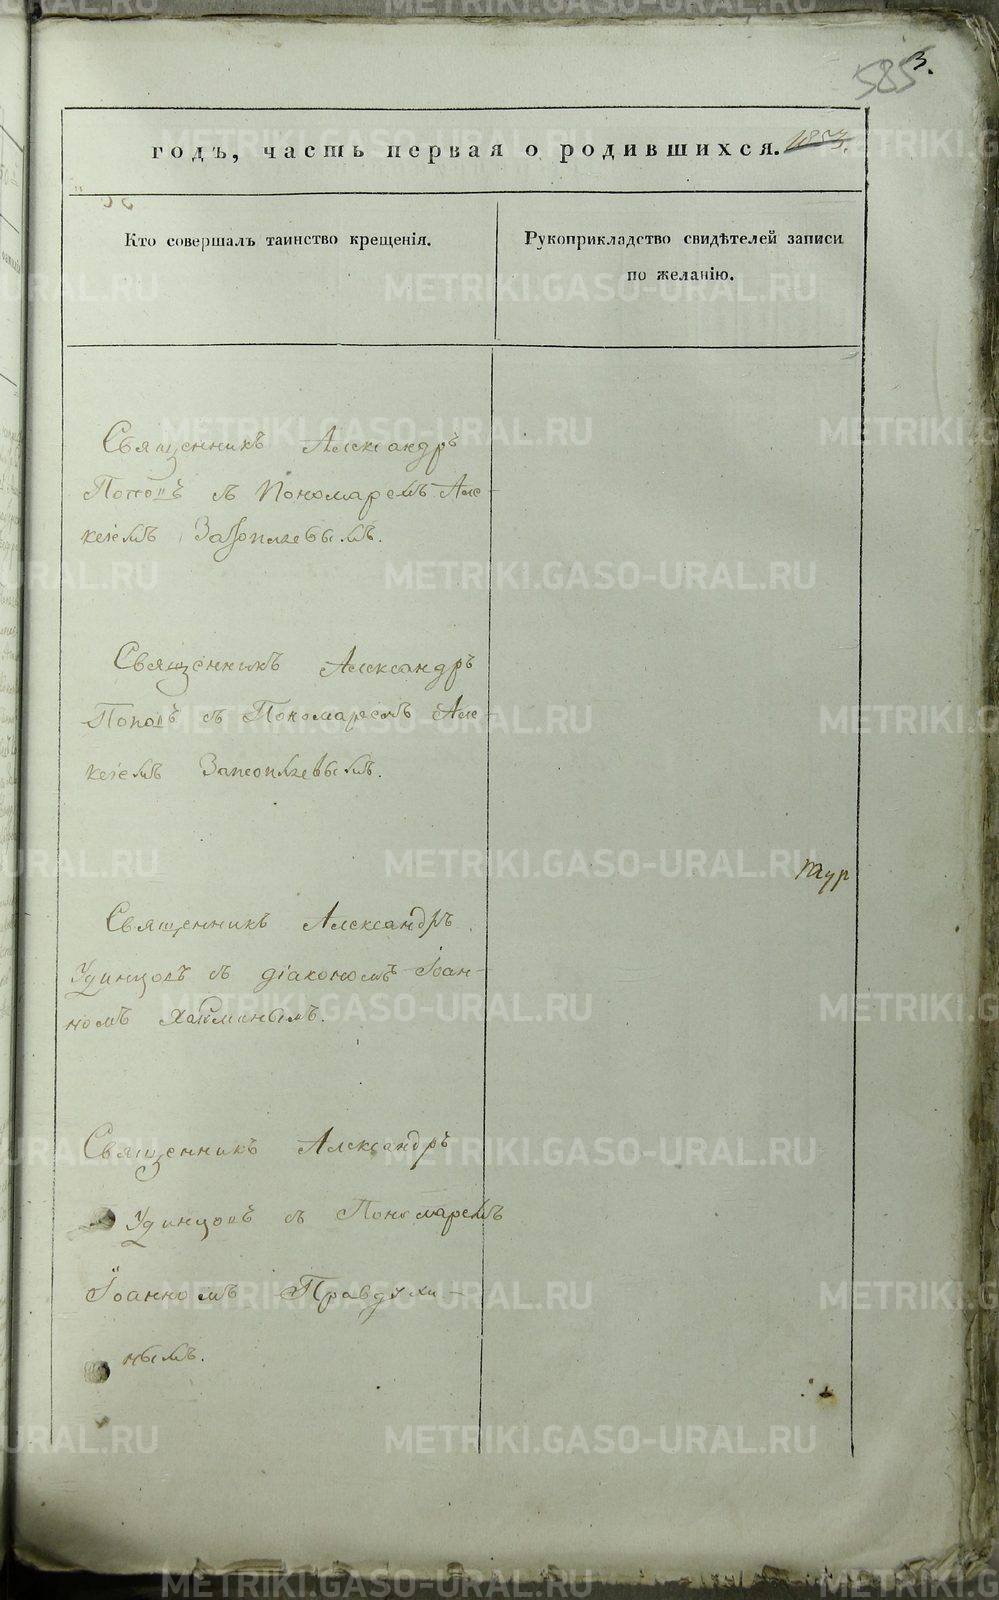 585
3.
годъ, часть первая о родившихся. 1853.
Кто совершалъ таинство крещенія.
Рукоприкладство свидѣтелей записи
по желанію.
Священникъ Александръ
Поповъ съ Пономаремъ Але-
ксіемъ
Священникъ Александръ
Поповъ съ Пономаремъ Але-
ксіемъ
Священникъ Александръ
Удинцовъ съ діакономъ Іоан-
номъ
Священникъ Александръ
Удинцовъ съ Пономаремъ
Іоанномъ Правдухи-
нымъ.
METRIKI.GASO-URAL.RU